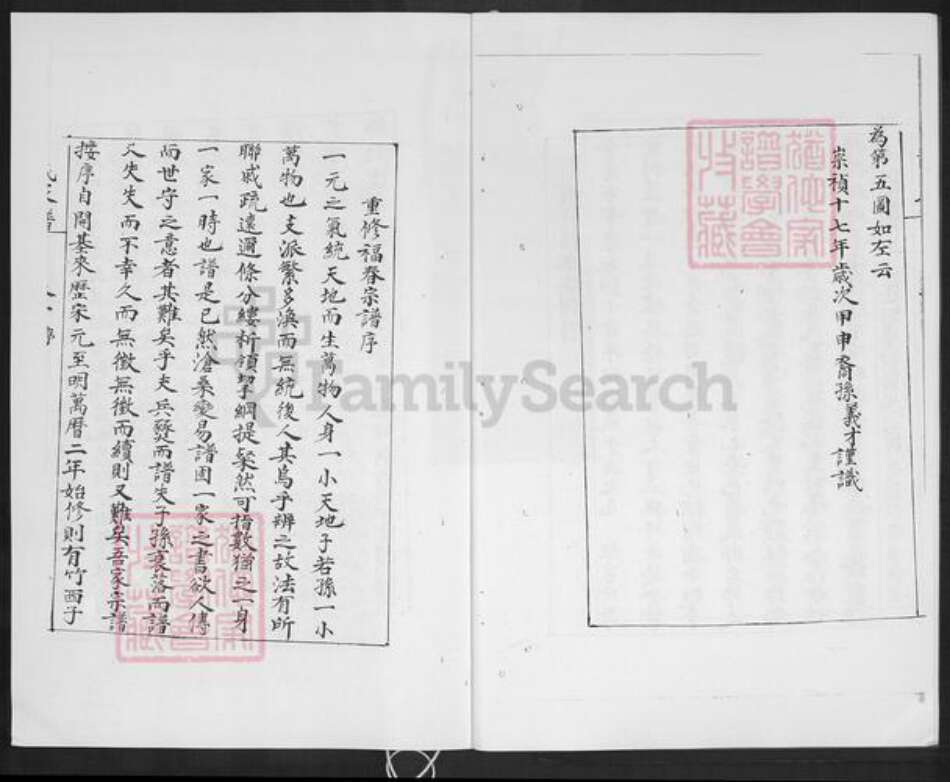 為第五圖如左云
崇禎十七年歲次甲申裔孫義才謹識
重修福春宗譜序
一元之氣統天地而生萬物人身一小天地子若孫一小
萬物也支派繁多渙而無統後人其烏乎辨之故法有所
聯戚疏遠邇條分縷析領挈綱提粲然可指數猶之一身
一家一時也譜是已然滄桑變易譜固一家之書欲人傳
而世守之意者其難矣乎夫兵燹而譜失子孫衰落而譜
又失失而不幸久而無徵無徵而續則又難矣吾家宗譜
按序自開基來歷宋元至明萬曆二年始修則有竹西子
FamilySearch